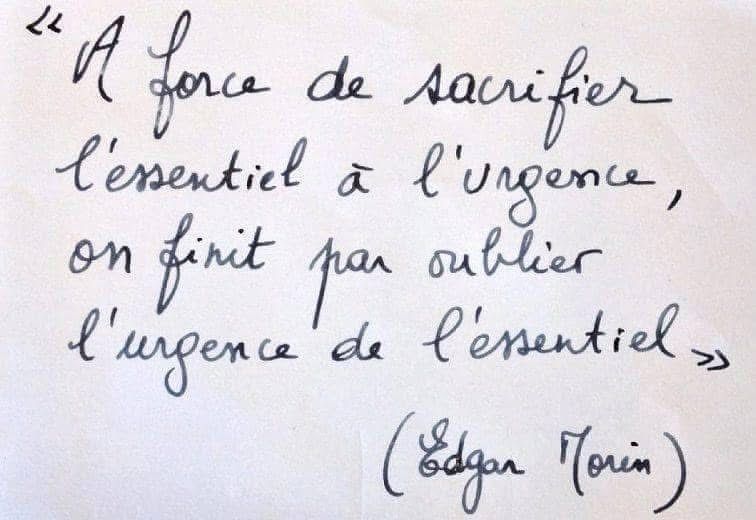 « A force de sacrifier
l'essentiel à l'urgence,
on finit par oublier
l'urgence de l'essentiel »
(Edgar Morin)